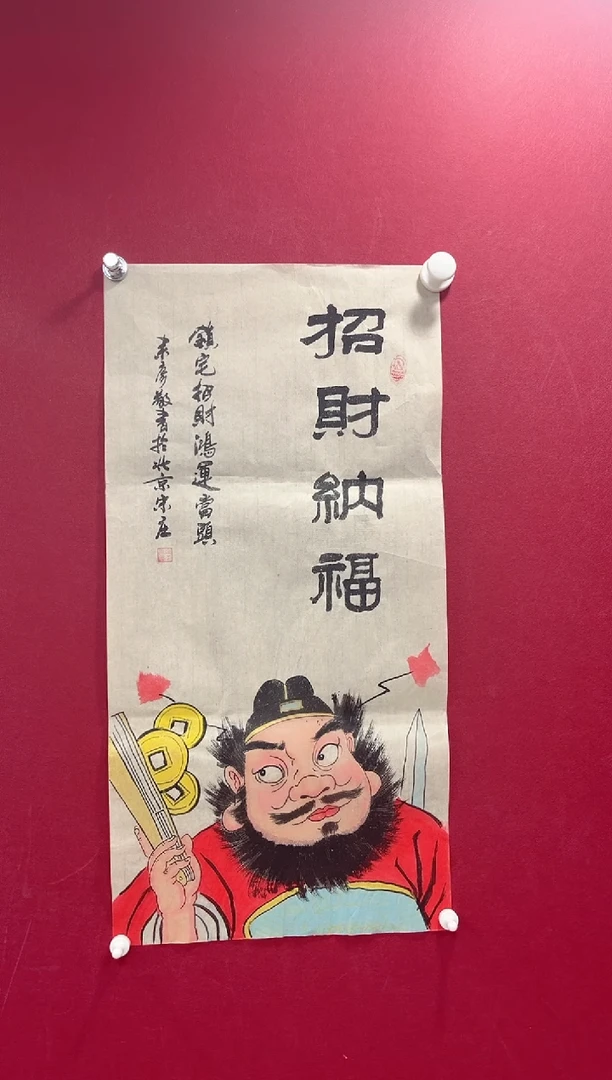 招財納福
鎮宅招財鴻運當頭
彦敬書於北京宋庄